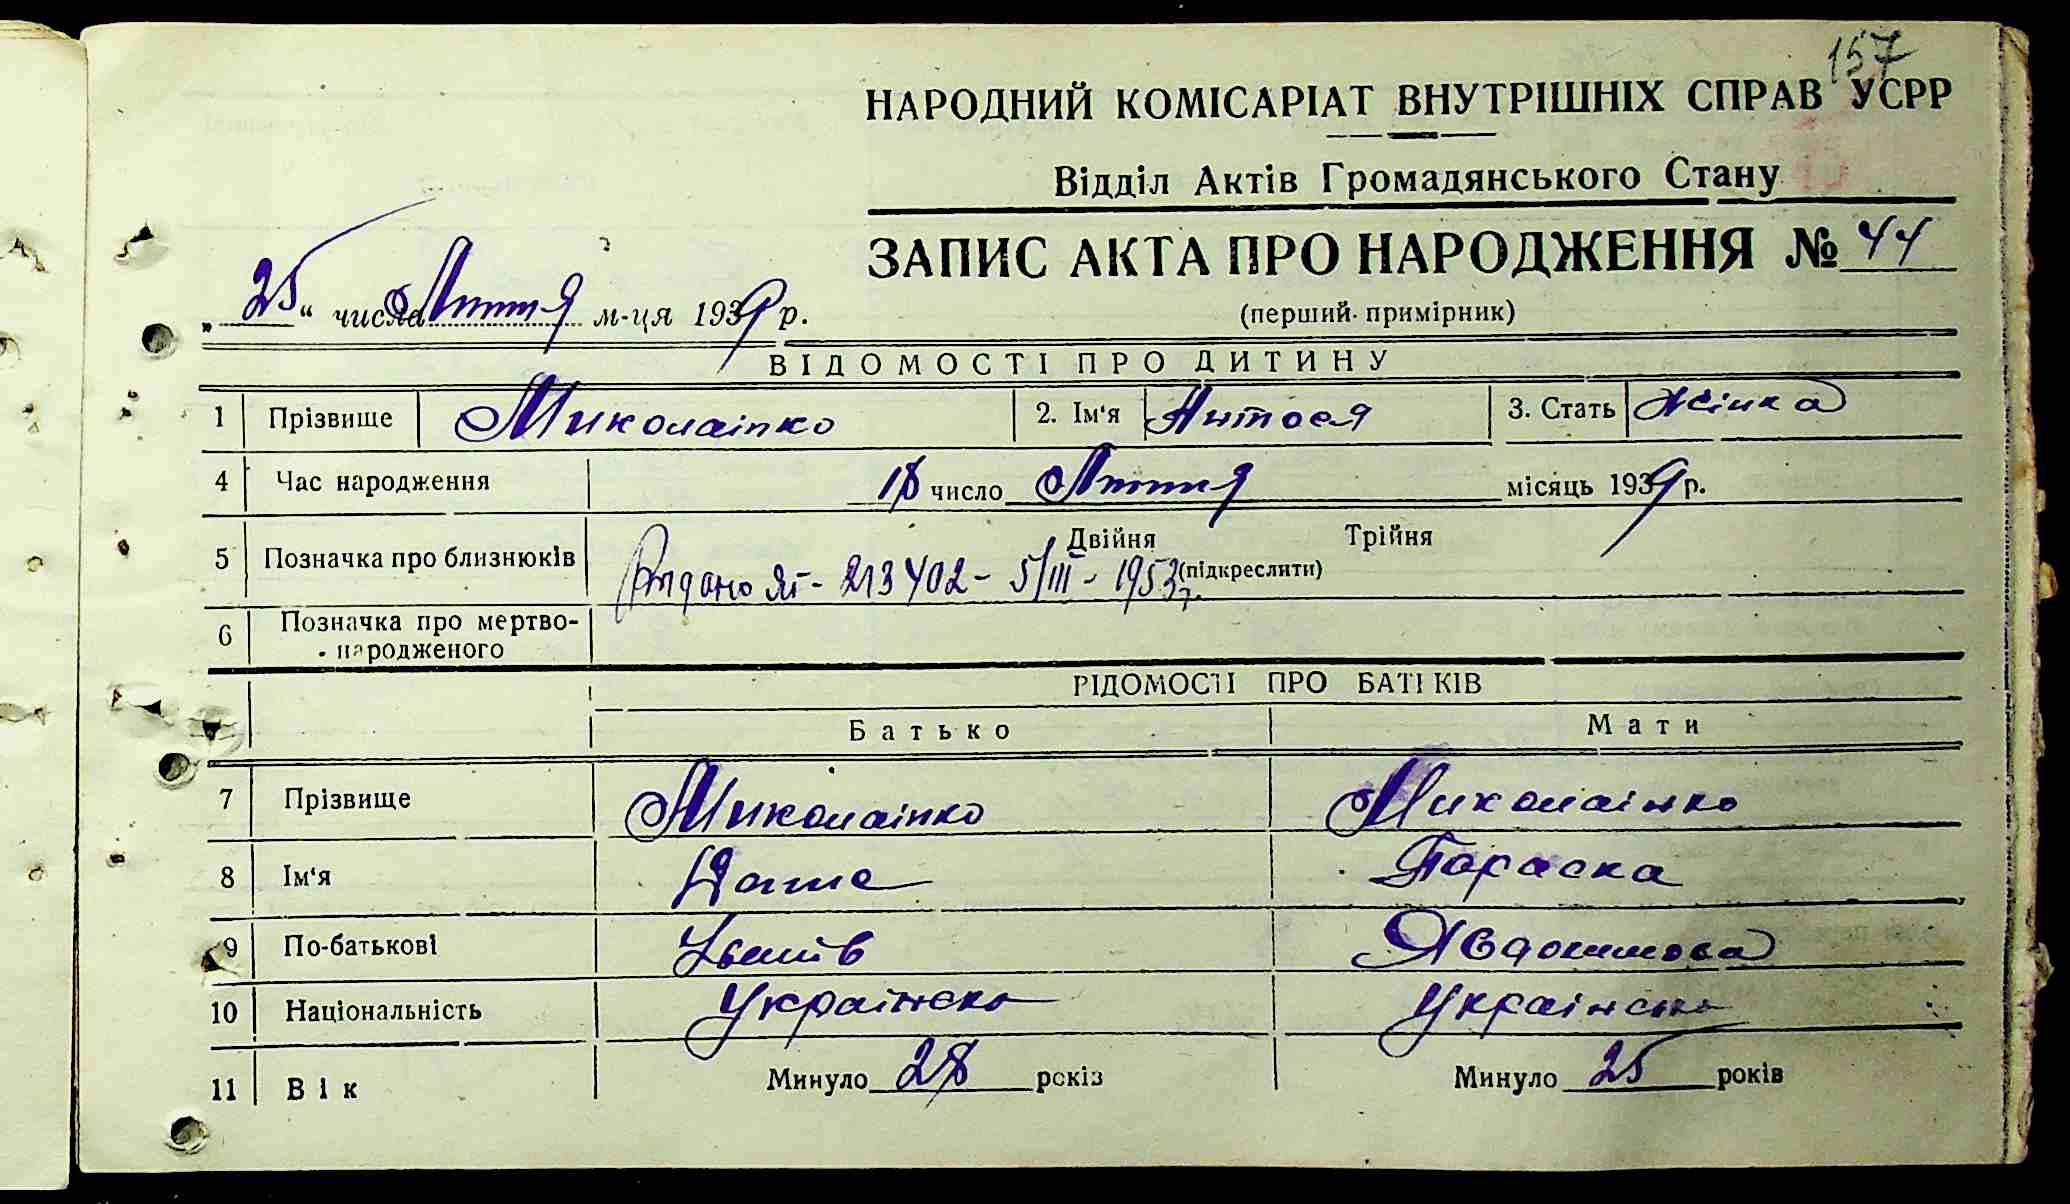 157
НАРОДНИЙ КОМІСАРІАТ ВНУТРІШНІХ СПРАВ УСРР
Відділ Актів Громадянського Стану
ЗАПИС АКТА ПРО НАРОДЖЕННЯ № 44
(перший примірник)
„25“ числа Лютня м-ця 1939 р.
ВІДОМОСТІ ПРО ДИТИНУ
1 Прізвище Миколаінко 2. Ім'я Антося 3. Стать Жінка
4 Час народження 18 число Лютня місяць 1939 р.
5 Позначка про близнюків Двійня Трійня
(підкреслити)
Видано ЯГ- 213402 - 5/III - 1953 г.
6 Позначка про мертво-
народженого
ВІДОМОСТІ ПРО БАТЬКІВ
Батько Мати
7 Прізвище Миколаінко Миколаінко
8 Ім'я Параска
9 По-батькові Явдокимова
10 Національність Украінско Украінско
11 Вік Минуло 28 років Минуло 25 років